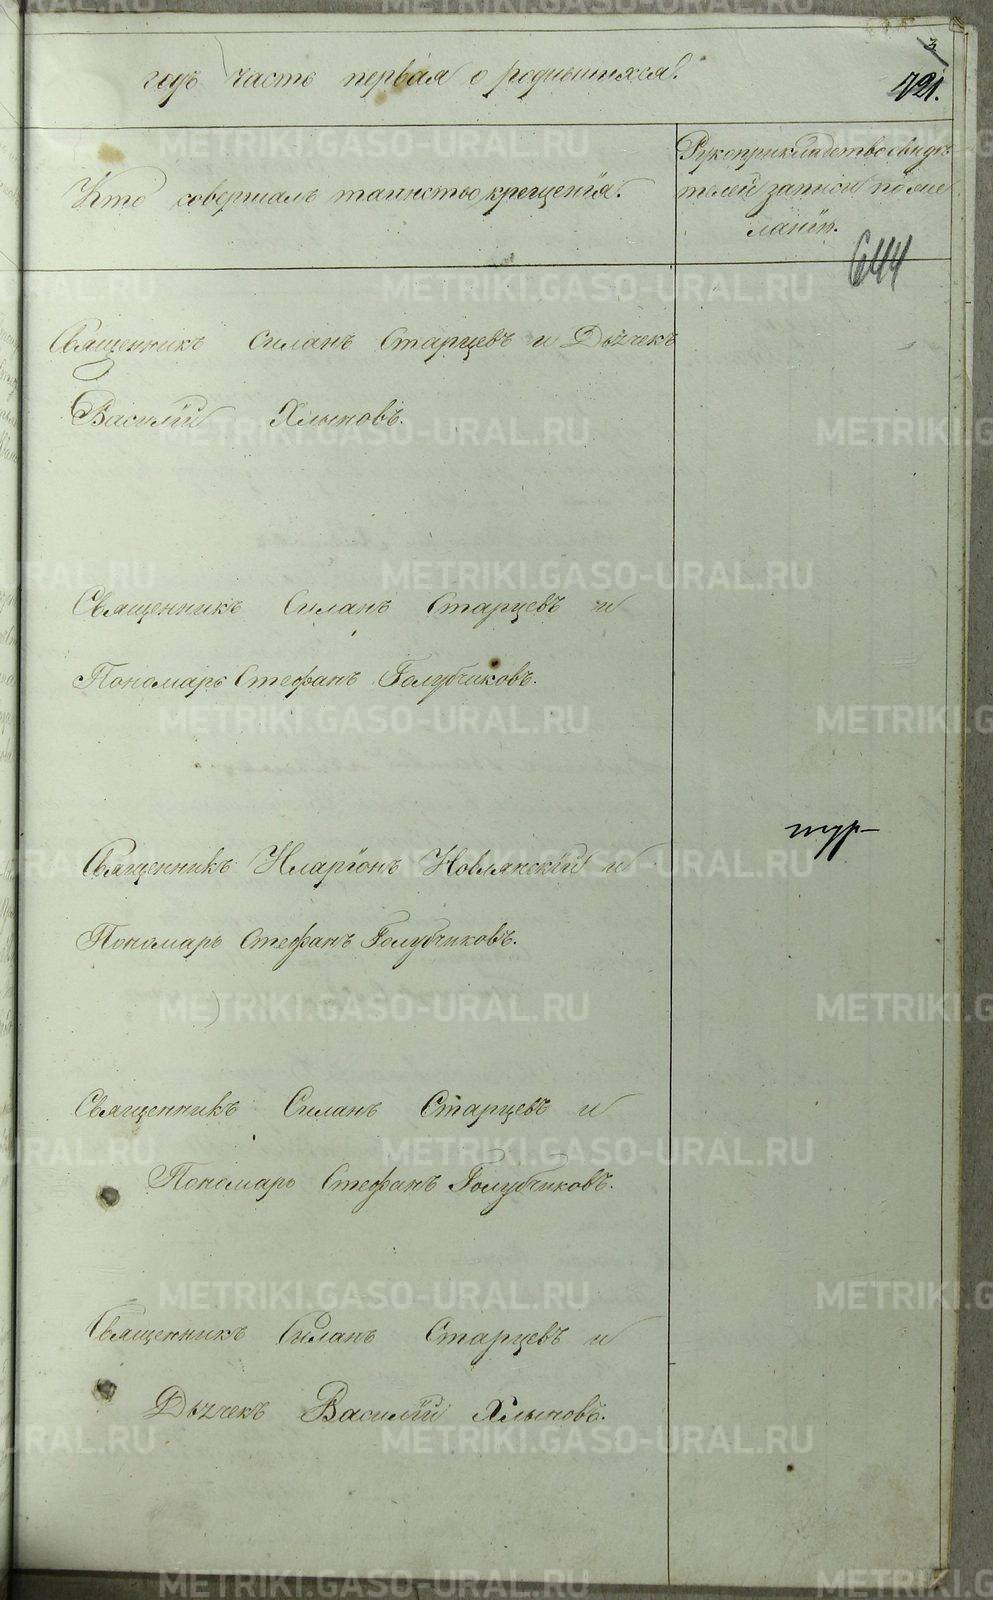 3
годъ часть первая о родившихся.
721.
Кто совершалъ таинство крещенія.
Рукоприкладство свидѣ-
телей записи по же-
ланію.
644
Священникъ Силанъ Старцевъ и Дьячекъ
Василій Хлыновъ.
Священникъ Силанъ Старцевъ и
Пономарь Стефанъ Голубчиковъ.
Священникъ Иларіонъ Новлянскій и
Пономарь Стефанъ Голубчиковъ.
Священникъ Силанъ Старцевъ и
Пономарь Стефанъ Голубчиковъ.
Священникъ Силанъ Старцевъ и
Дьячекъ Василій Хлыновъ.
METRIKI.GASO-URAL.RU